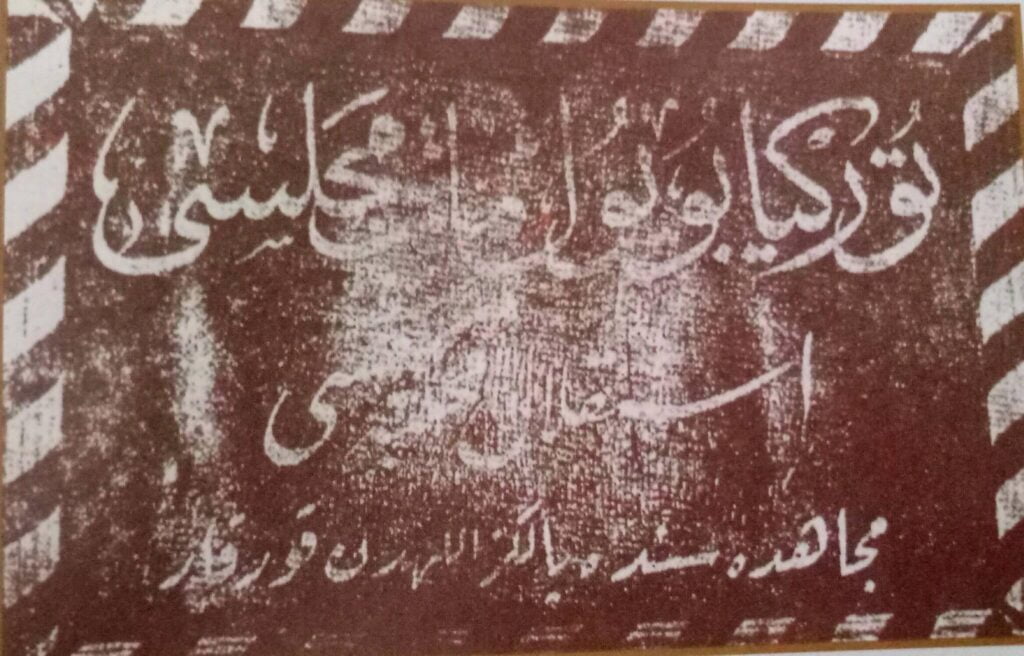 تُوركيا بُويُوك ملت مجلسى
استقلال محكمه سى
مجاهده سنده يالكز اللهدن قورقار